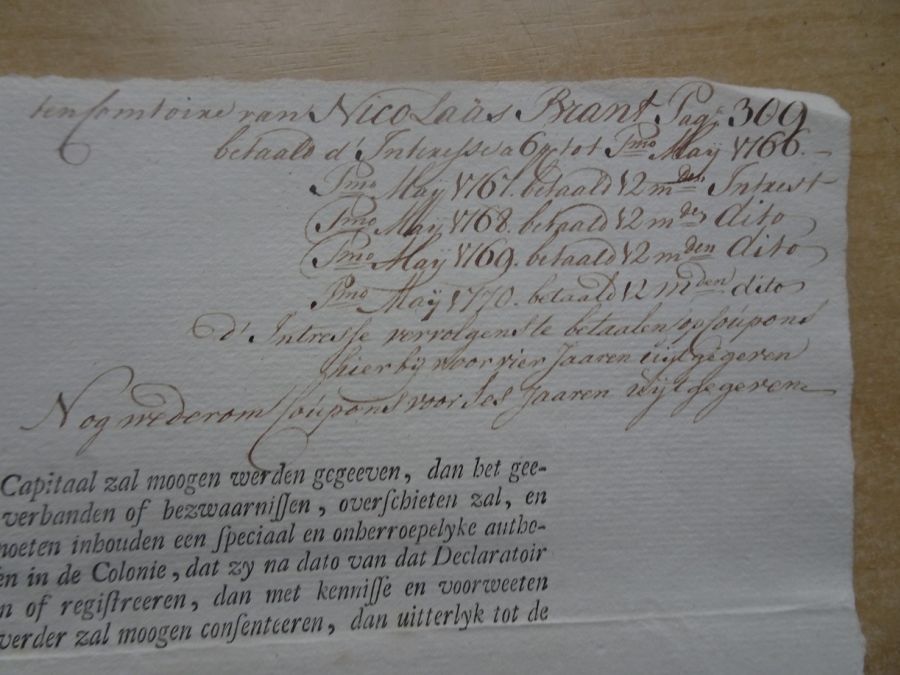 ten Comtoire van Nicolaäs Brant Pag: 309
betaald d' Intresse a 6 pct tot Pmo Maÿ 1766.
Pmo Maÿ 1767. betaald 12 mden Intrest
Pmo Maÿ 1768. betaald 12 mden dito
Pmo Maÿ 1769. betaald 12 mden dito
Pmo Maÿ 1770. betaald 12 mden dito
d' Intresse vervolgens te betaalen op Coupons
hier bij voor vier Jaaren uijtgegeven
Nog wederom Coupons voor Ses Jaaren uijtgegeven
Capitaal zal moogen werden gegeeven, dan het gee-
verbanden of bezwaarnissen, overschieten zal, en
moeten inhouden een speciaal en onherroepelyke autho-
en in de Colonie, dat zy na dato van dat Declaratoir
n of registreeren, dan met kennisse en voorweeten
verder zal moogen consenteeren, dan uitterlyk tot de